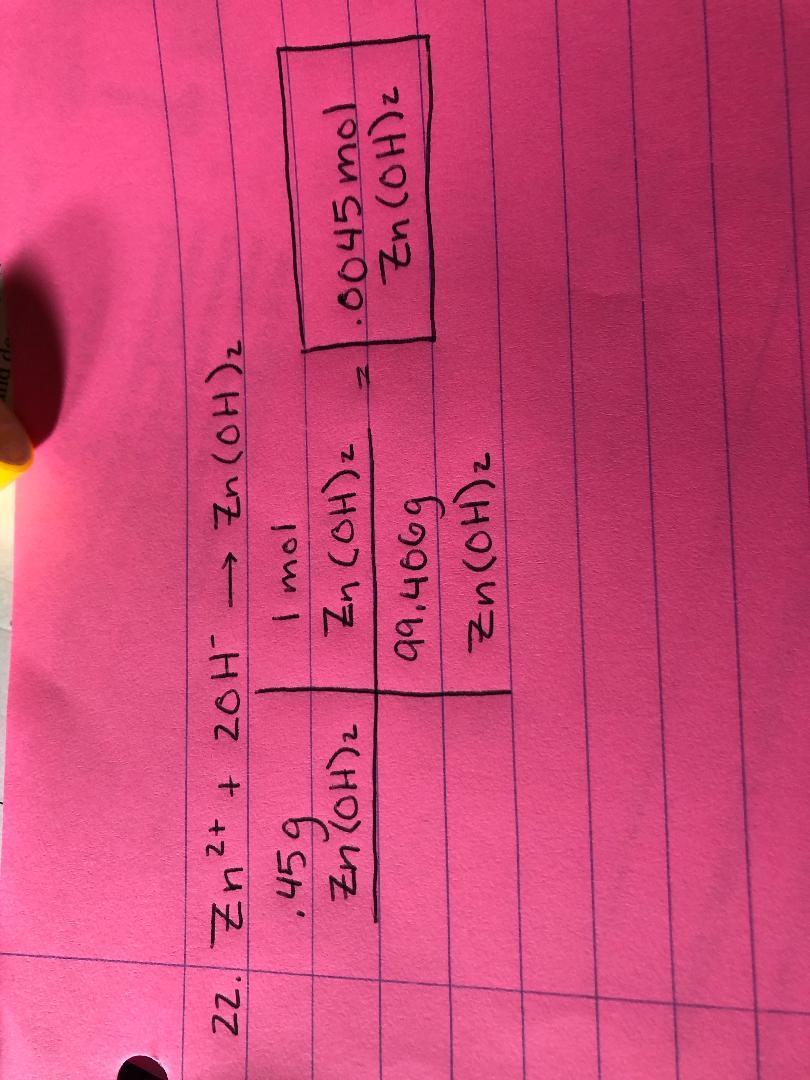 22. Zn²⁺ + 2OH⁻ → Zn(OH)₂
.45g
Zn(OH)₂
1 mol
Zn(OH)₂
99.466g
Zn(OH)₂
=
.0045 mol
Zn(OH)₂